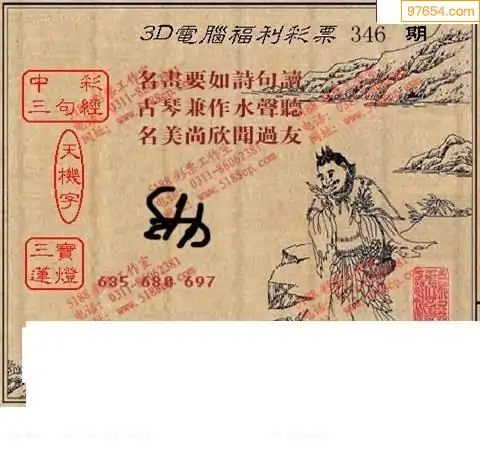 97654.com
3D電腦福利彩票 346 期
中彩
三句經
名畫要如詩句讀
古琴兼作水聲聽
名美尚欣聞過友
天機字
三寶
蓮燈
635 680 697
5188彩票工作室
0311-86062381
www.5188cp.com